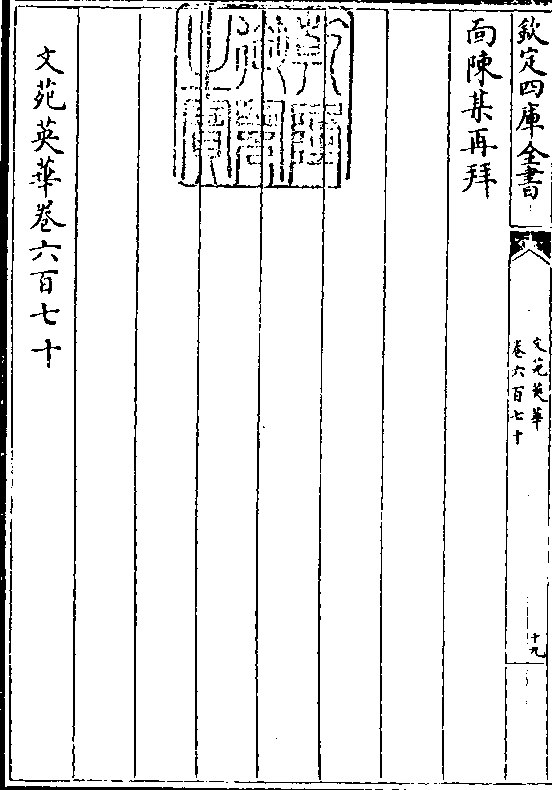 欽定四庫全書
文苑英華
卷六百七十
十九
面陳某再拜
乾隆御覽之寶
文苑英華卷六百七十